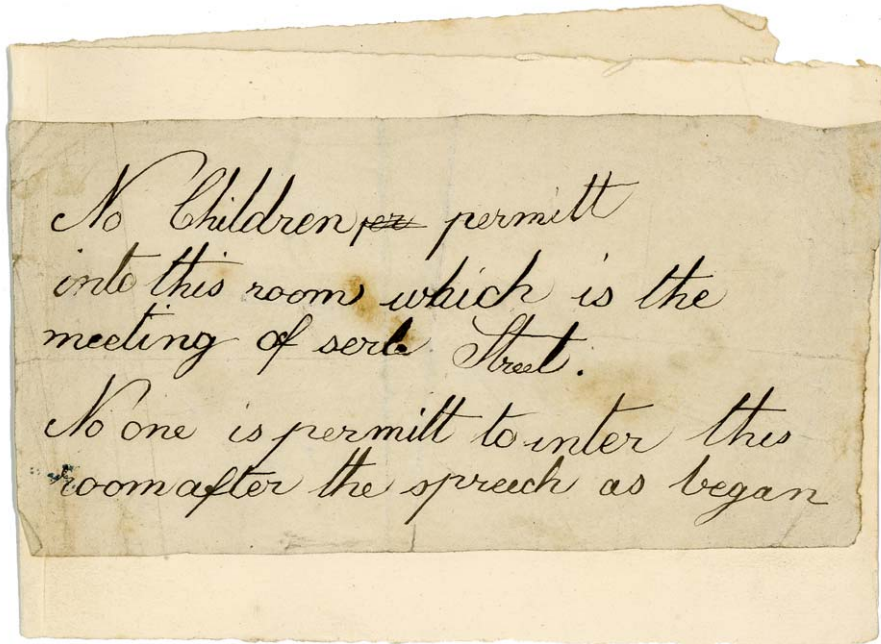 No Children per permitt
into this room which is the
meeting of Street.
No one is permitt to inter this
room after the spreech as began